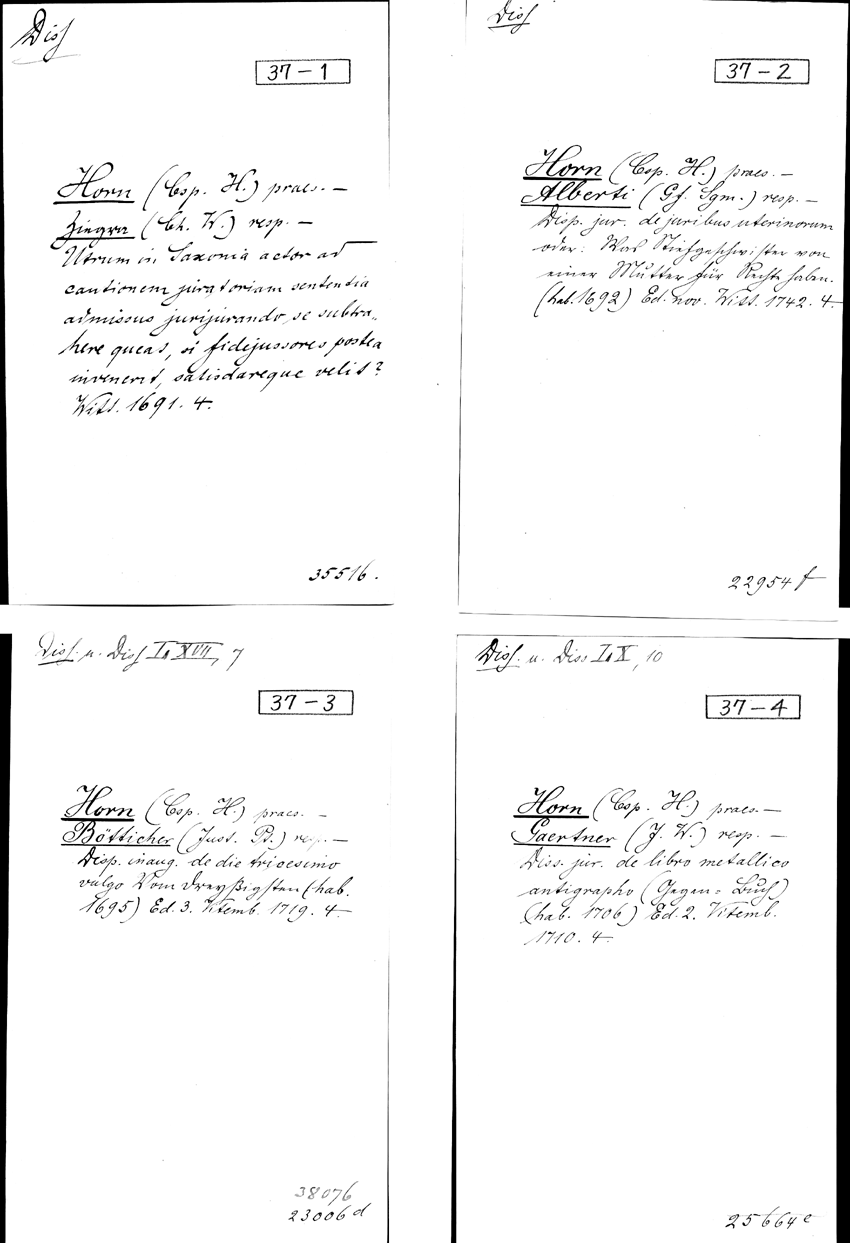 Diss
37-1
Horn (Csp. H.) praes. —
Ziegra (Ch. W.) resp. —
Utrum in Saxonia actor ad
cautionem juratoriam sententia
admissus jurijurando, se subtra„
here queat, si fidejussores postea
invenerit, satisdareque velit?
Witt. 1691. 4.
35516.
Diss
37-2
Horn (Csp. H.) praes. —
Alberti (Gf. Sgm.) resp. —
Disp. jur. de juribus uterinorum
oder: Was Stiefgeschwister von
einer Mutter für Recht haben.
(hab. 1692) Ed. nov. Witt. 1742. 4.
22954 f
Diss. u. Diss I, XVII, 7
37-3
Horn (Csp. H.) praes. —
Bötticher (Just. Pt.) resp. —
Disp. inaug. de die tricesimo
vulgo Vom Dreyßigsten (hab.
1695) Ed. 3. Vitemb. 1719. 4
38076
23006 d
Diss. u. Diss I, X, 10
37-4
Horn (Csp. H.) praes. —
Gaertner (J. W.) resp. —
Diss. jur. de libro metallico
antigrapho (Gegen=Buch)
(hab. 1706) Ed. 2. Vitemb.
1710. 4.
25664 e